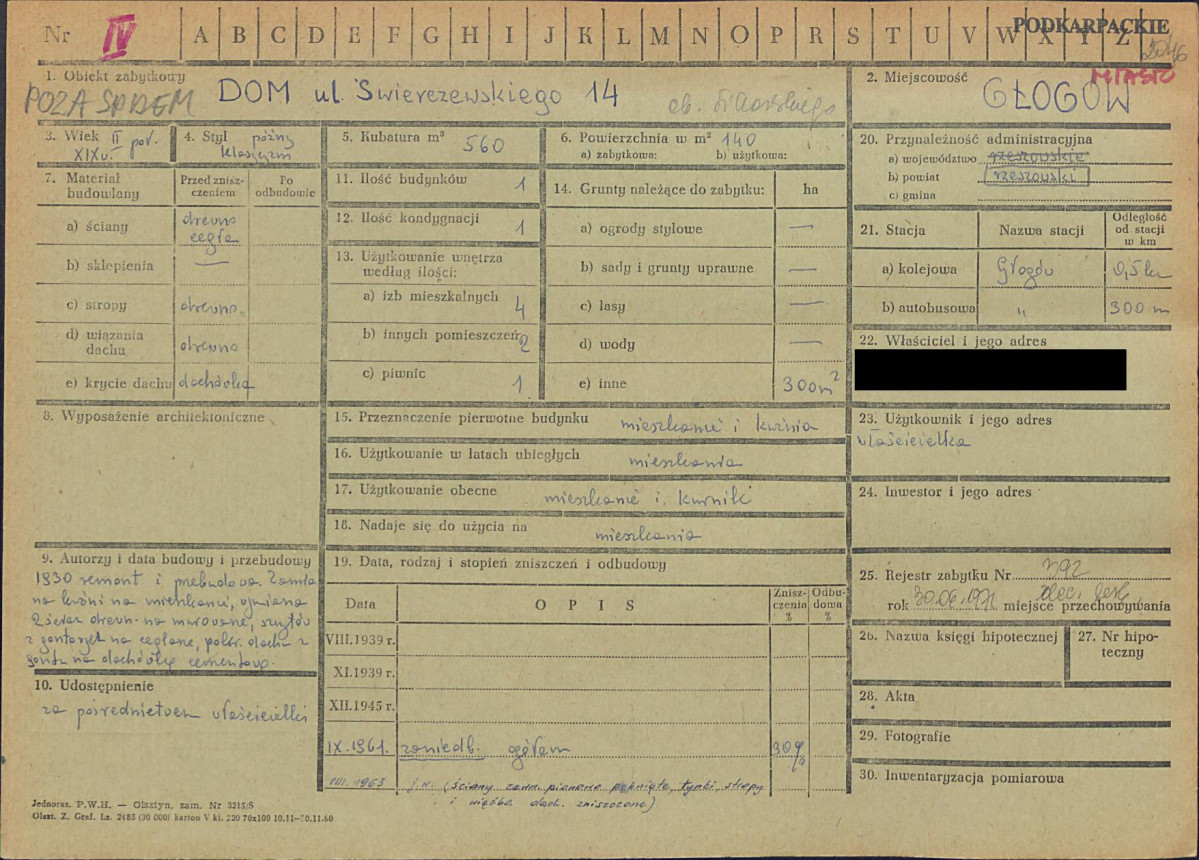 Nr IV A B C D E F G H I J K L M N O P R S T U V W X Y Z PODKARPACKIE
1. Obiekt zabytkowy DOM ul. Świerczewskiego 14
POZA SPISEM ob. Sikorskiego
2. Miejscowość MIASTO
GŁOGÓW
3. Wiek II poł.
XIX w.
4. Styl późny
klasycyzm
5. Kubatura m³ 560
6. Powierzchnia w m² 140
a) zabytkowa: b) użytkowa:
7. Materiał
budowlany
Przed znisz-
czeniem
Po
odbudowie
a) ściany drewno
cegła
b) sklepienia —
c) stropy drewno
d) wiązania
dachu drewno
e) krycie dachu dachówka
8. Wyposażenie architektoniczne
9. Autorzy i data budowy i przebudowy
1930 remont i przebudowa. Zamia
na kuźni na mieszkanie, wymiana
2 ścian drewn. na murowane, szczytów
z gontowych na ceglane, pokr. dachu z
gontu na dachówkę cementową.
10. Udostępnienie
za pośrednictwem właścicielki
11. Ilość budynków 1
12. Ilość kondygnacji 1
13. Użytkowanie wnętrza
według ilości:
a) izb mieszkalnych 4
b) innych pomieszczeń 2
c) piwnic 1
14. Grunty należące do zabytku: ha
a) ogrody stylowe —
b) sady i grunty uprawne —
c) lasy —
d) wody —
e) inne 300 m²
15. Przeznaczenie pierwotne budynku mieszkanie i kuźnia
16. Użytkowanie w latach ubiegłych mieszkania
17. Użytkowanie obecne mieszkanie i kurnik
18. Nadaje się do użycia na mieszkania
19. Data, rodzaj i stopień zniszczeń i odbudowy
Data OPIS Znisz-
czenia
%
Odbu-
dowa
%
VIII.1939 r.
XI.1939 r.
XII.1945 r.
IX.1961. zaniedb. ogółem 30%
VIII.1963 j.w. (ściany zewn. pionowo pęknięte, tynki, stropy
i więźba dach. zniszczone)
20. Przynależność administracyjna
a) województwo rzeszowskie
b) powiat rzeszowski
c) gmina
21. Stacja Nazwa stacji Odległość
od stacji
w km
a) kolejowa Głogów 0,5 km
b) autobusowa " 300 m
22. Właściciel i jego adres
23. Użytkownik i jego adres
właścicielka
24. Inwestor i jego adres
25. Rejestr zabytku Nr 392
rok 30.06.1971 miejsce przechowywania
26. Nazwa księgi hipotecznej
27. Nr hipo-
teczny
28. Akta
29. Fotografie
30. Inwentaryzacja pomiarowa
Jednoraz. P.W.H. — Olsztyn, zam. Nr 3215/S
Olszt. Z. Graf. Lz. 2485 (30 000) karton V kl. 220 70x100 10.11—30.11.60